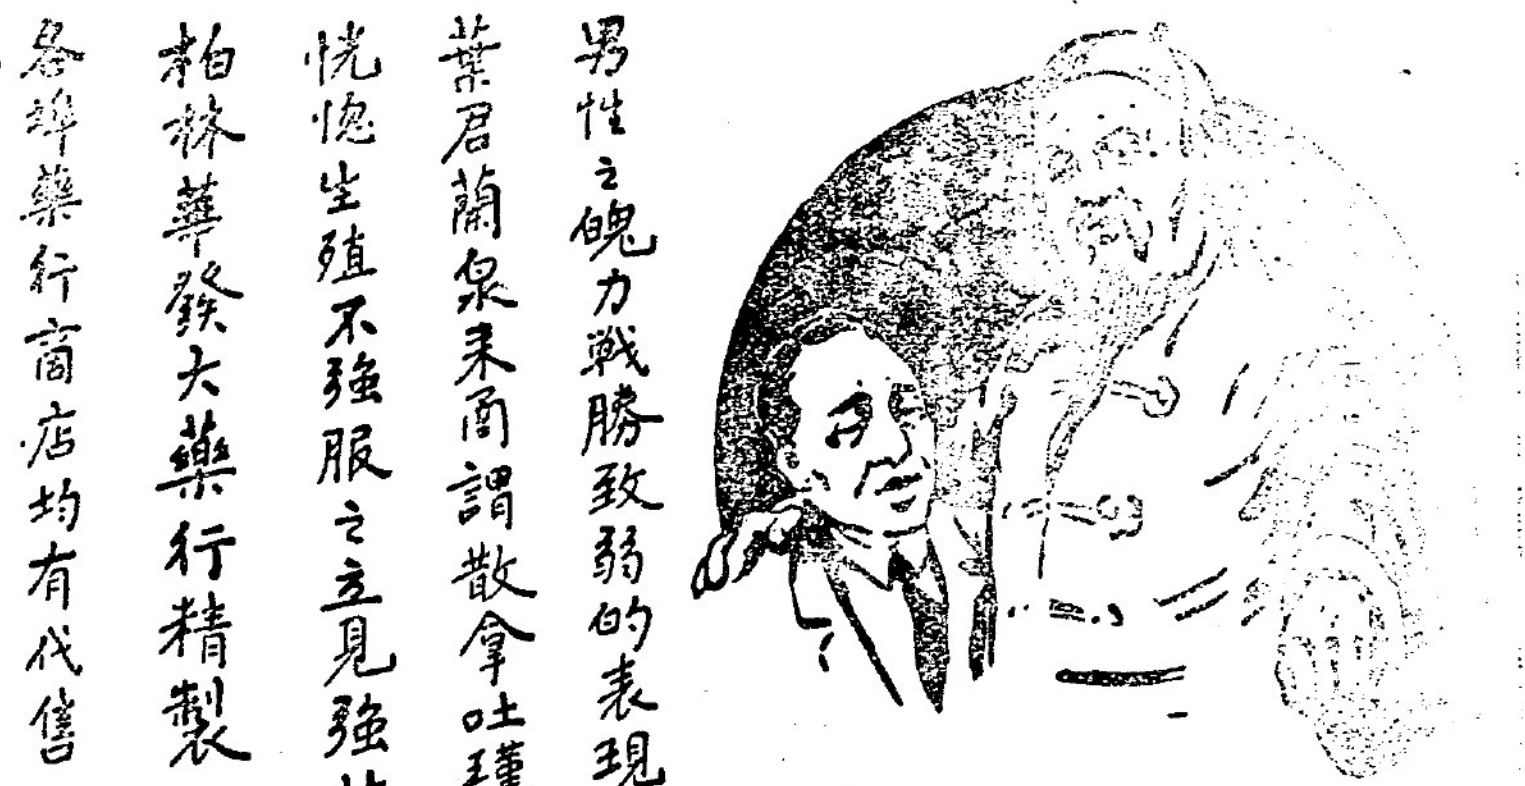 男性之魄力戦勝致弱的表現
葉君蘭泉来函謂散拿吐瑾
恍惚生殖不強服之立見強
柏林華發大藥行精製
各埠藥行商店均有代售